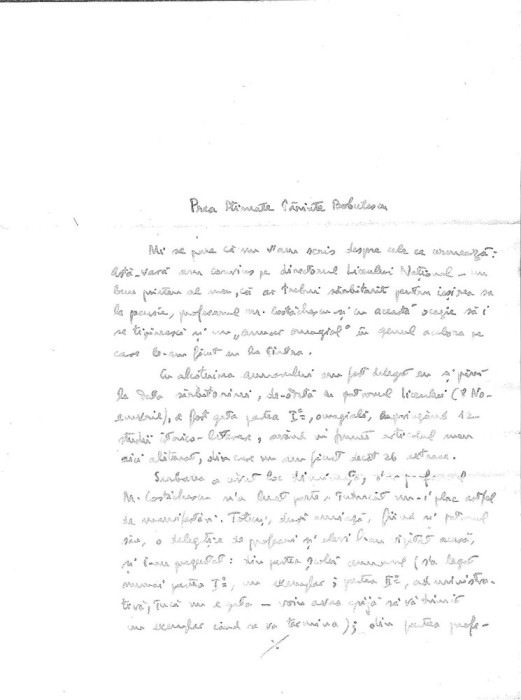 Prea Stimate Părinte Bobulescu
Mi se pare că nu v-am scris despre cele ce urmează:
Astă-vară am convins pe directorul Liceului Național - un
bun prieten al meu, că ar trebui sărbătorit pentru ieșirea sa
la pensie, profesorul M. Costăchescu și cu această ocazie să i
se tipărească și un „anuar omagial" în genul acelora pe
care le-am făcut eu la
Cu alcătuirea anuarului am fost delegat eu și până
la data sărbătorirei, de-odată cu patronul Liceului (8 No-
emvrie), a fost gata partea I-a, omagială, cuprinzând 12
studii istorico-literare, având în frunte articolul meu
aici alăturat, din care nu am făcut decât 26 extrase.
Serbarea a avut loc dimineața, d-l profesor
M. Costăchescu n'a luat parte, întrucât nu-i plac astfel
de manifestări. Totuși, după amiază, fiind și patronul
său, o delegație de profesori și elevi l-am vizitat acasă,
și i-am prezentat: din partea școlii anuarul (s'a legat
numai partea I-a, un exemplar; partea II-a, administra-
tivă, încă nu e gata - voiu avea grijă să vă trimit
un exemplar când se va termina); din partea profe-
./.